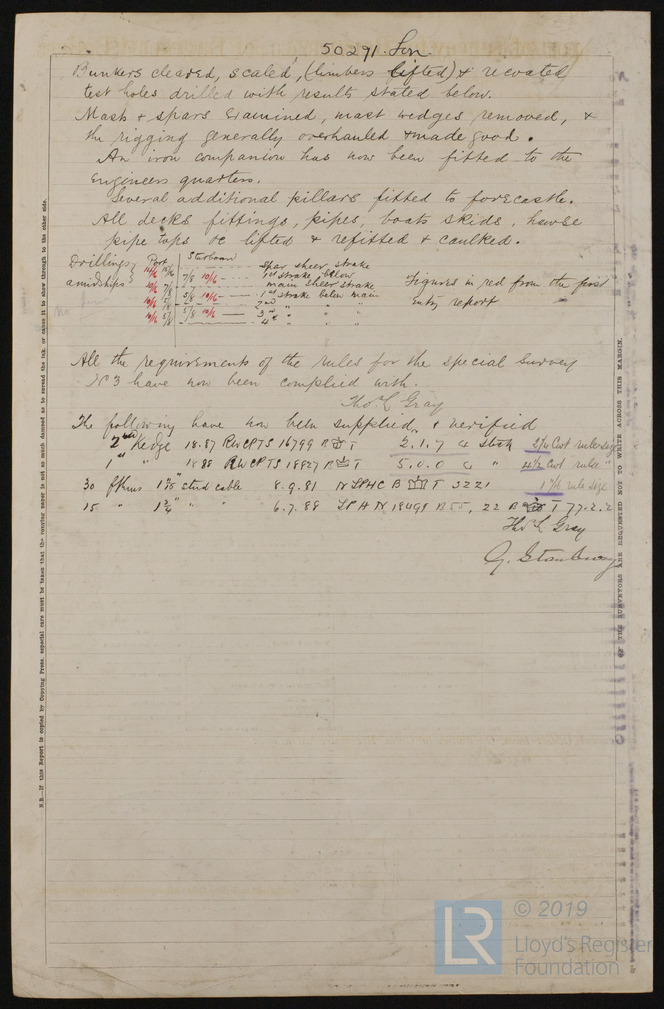 50291. Lon
Bunkers cleared, scaled, (limbers lifted) & recoated
test holes drilled with results stated below.
Masts & spars examined, mast wedges removed, &
the rigging generally overhauled & made good.
An iron companion has now been fitted to the
Engineers quarters.
Several additional pillars fitted to forecastle.
All decks fittings, pipes, boats skids, hawse
pipe tops &c lifted & refitted & caulked.
Drillings Port Starboard
amidships
spar sheer strake
1st strake below
main sheer strake
1st strake below main
2nd " " "
3rd " " "
4th " " "
Figures in red from the first
Entry report
All the requirements of the rules for the special Survey
No 3 have now been complied with.
Thos. C Gray
The following have now been supplied, & verified
2nd Kedge 18.87 RWCPTS 16799 2.1.7 Stock 2¼ Cwt rule size
1 " " 1888 RWCPTS 18827 5.0.0 " 4½ Cwt rule "
30 fthms stud cable 8.9.81 N LPHC B T 3221 rule size
15 " " " 6.7.88 LPHN 18498 B 55, 22 B T 77.2.2
Thos. C Gray
N.B.—If this Report is copied by Copying Press, especial care must be taken that the copying paper is not so much damped as to spread the ink, or cause it to show through to the other side.
OF THE SURVEYORS ARE REQUESTED NOT TO WRITE ACROSS THIS MARGIN.
LR
© 2019
Lloyd's Register
Foundation